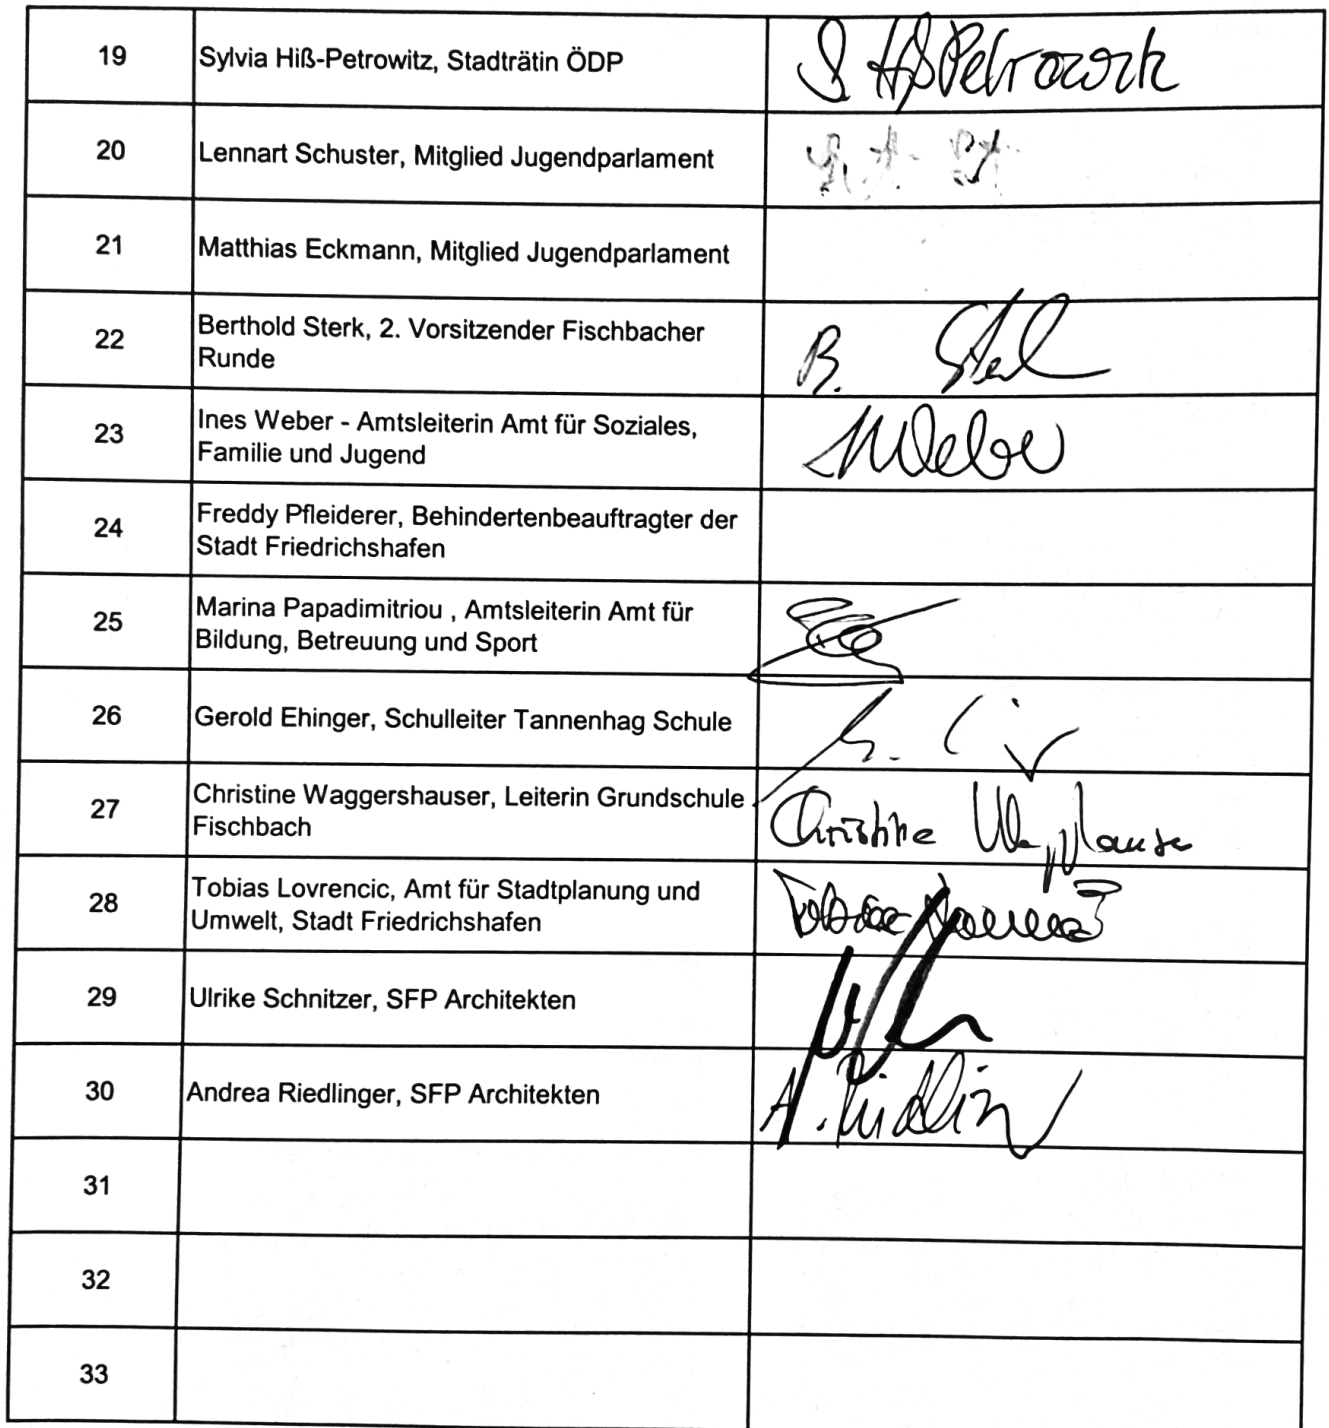 19
Sylvia Hiß-Petrowitz, Stadträtin ÖDP
20
Lennart Schuster, Mitglied Jugendparlament
21
Matthias Eckmann, Mitglied Jugendparlament
22
Berthold Sterk, 2. Vorsitzender Fischbacher
Runde
B. Sterk
23
Ines Weber - Amtsleiterin Amt für Soziales,
Familie und Jugend
Weber
24
Freddy Pfleiderer, Behindertenbeauftragter der
Stadt Friedrichshafen
25
Marina Papadimitriou , Amtsleiterin Amt für
Bildung, Betreuung und Sport
26
Gerold Ehinger, Schulleiter Tannenhag Schule
27
Christine Waggershauser, Leiterin Grundschule
Fischbach
Christine
28
Tobias Lovrencic, Amt für Stadtplanung und
Umwelt, Stadt Friedrichshafen
29
Ulrike Schnitzer, SFP Architekten
30
Andrea Riedlinger, SFP Architekten
31
32
33